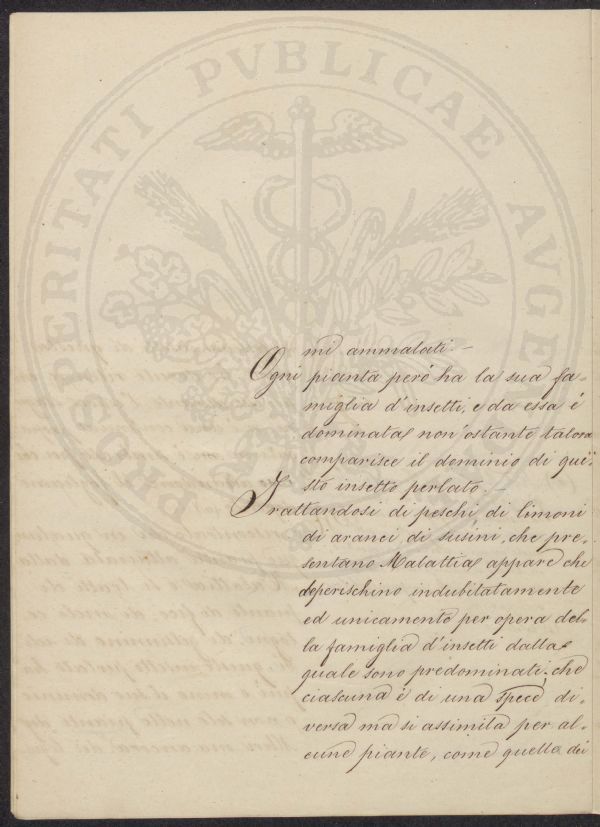 PROSPERITATI PVBLICAE AVGE
mi ammalati. –
Ogni pianta però ha la sua fa-
miglia d'insetti, e da essa é
dominata non'ostante talora
comparisce il dominio di que-
sto insetto perlato. –
Trattandosi di peschi, di limoni
di aranci di susini, che pre-
sentano Malattia appare che
deperischino indubitatamente
ed unicamente per opera del-
la famiglia d'insetti dalla
quale sono predominati. che
ciascuna é di una spece di-
versa ma si assimila per al-
cune piante, come quella dei